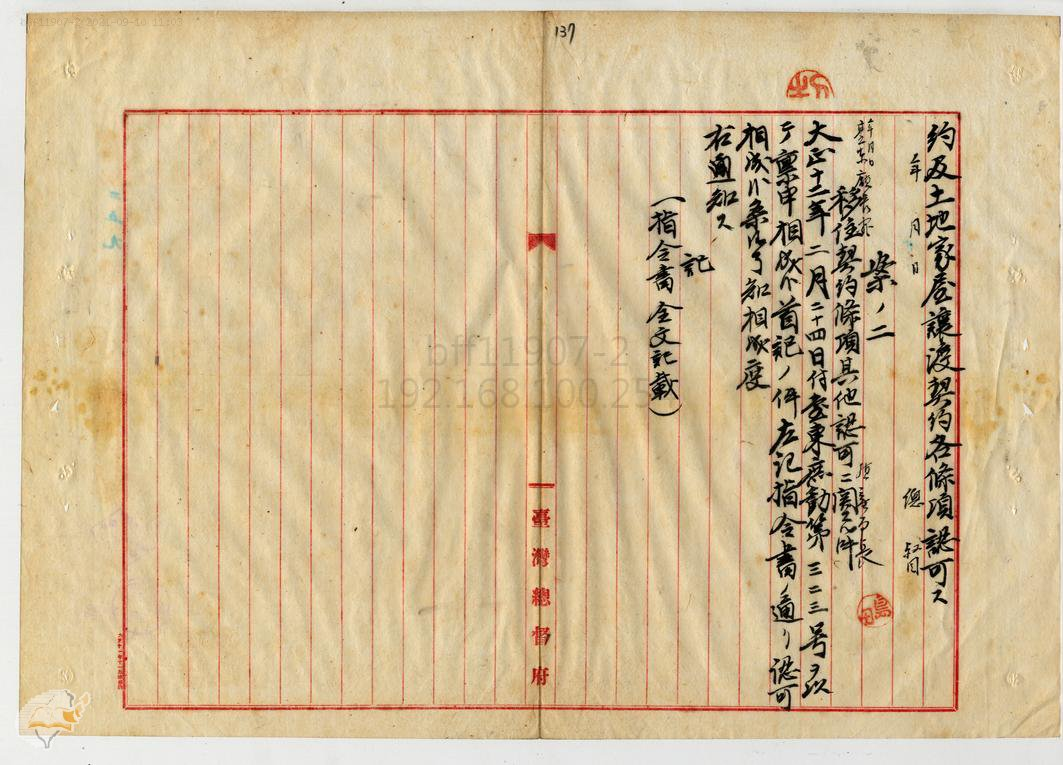 bff11907-2 2021-09-10 11:03
137
約及土地家屋讓渡契約各條項認可ス
年 月 日 總督
案ノ二
年月日
臺東廳長宛 長
移住契約條項其他認可ニ關スル件
大正十二年二月二十四日付臺東庶勸第三二三号ヲ以
テ稟申相成候首記ノ件左記指令書ノ通リ認可
相成候条御了知相成度
右通知ス
記
(指令書全文記載)
臺灣總督府
bff11907-2
192.168.100.25